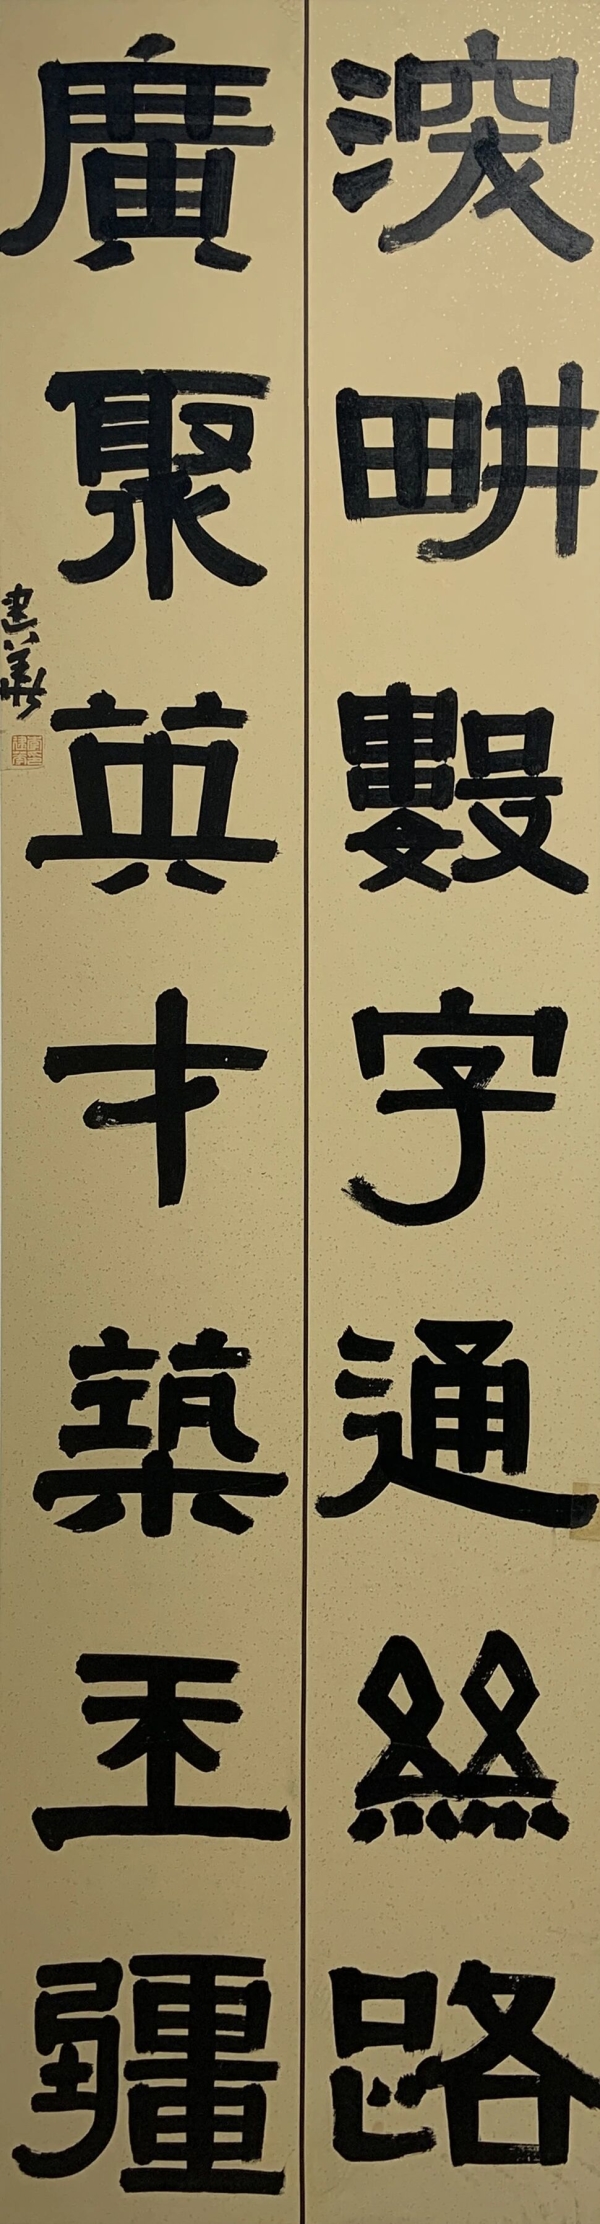 深畊數字通絲路
廣聚英才築玉疆
建華